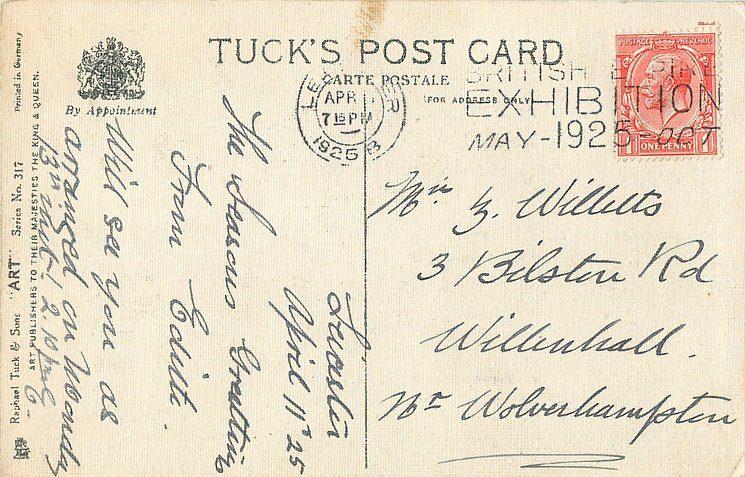 TUCK'S POST CARD
CARTE POSTALE
(FOR ADDRESS ONLY)
By Appointment
LE ER
APR
7 15 PM
1925
BRITISH EMPIRE
EXHIBITION
MAY-1925-OCT
POSTAGE REVENUE
ONE PENNY
Leicester
April 11th 25
The Seasons Greetings
From Edith.
Will see you as
arranged on Monday
13th inst.
Mrs Willetts
3 Bilston Rd
Willenhall.
Nr Wolverhampton
Raphael Tuck & Sons "ART" Series No. 317 Printed in Germany
ART PUBLISHERS TO THEIR MAJESTIES THE KING & QUEEN.